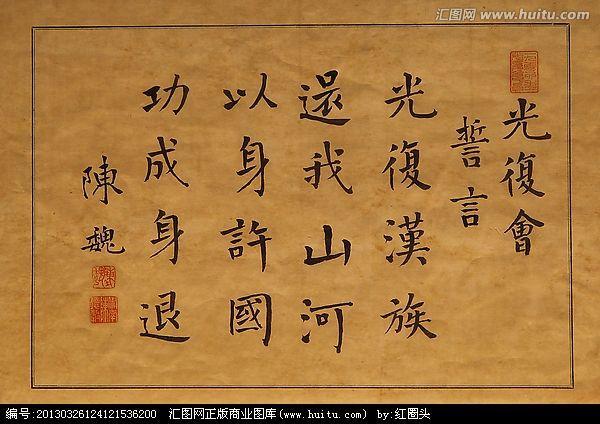 光復會
誓言
光復漢族
還我山河
以身許國
功成身退
陳魏
汇图网 www.huitu.com
编号:20130326124121536200 汇图网正版商业图库(www.huitu.com) by:红圈头